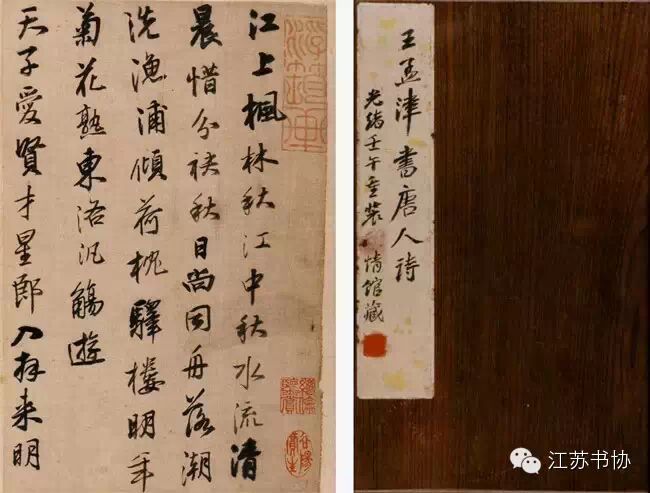 江上楓林秋江中秋水流清
晨惜分袂秋日尚同舟落潮
洗漁浦傾荷枕驛樓明年
菊花熟東洛汎觴遊
天子愛賢才星郎入拜来明
王孟津書唐人詩
光緒壬午重裝 情館藏
江苏书协